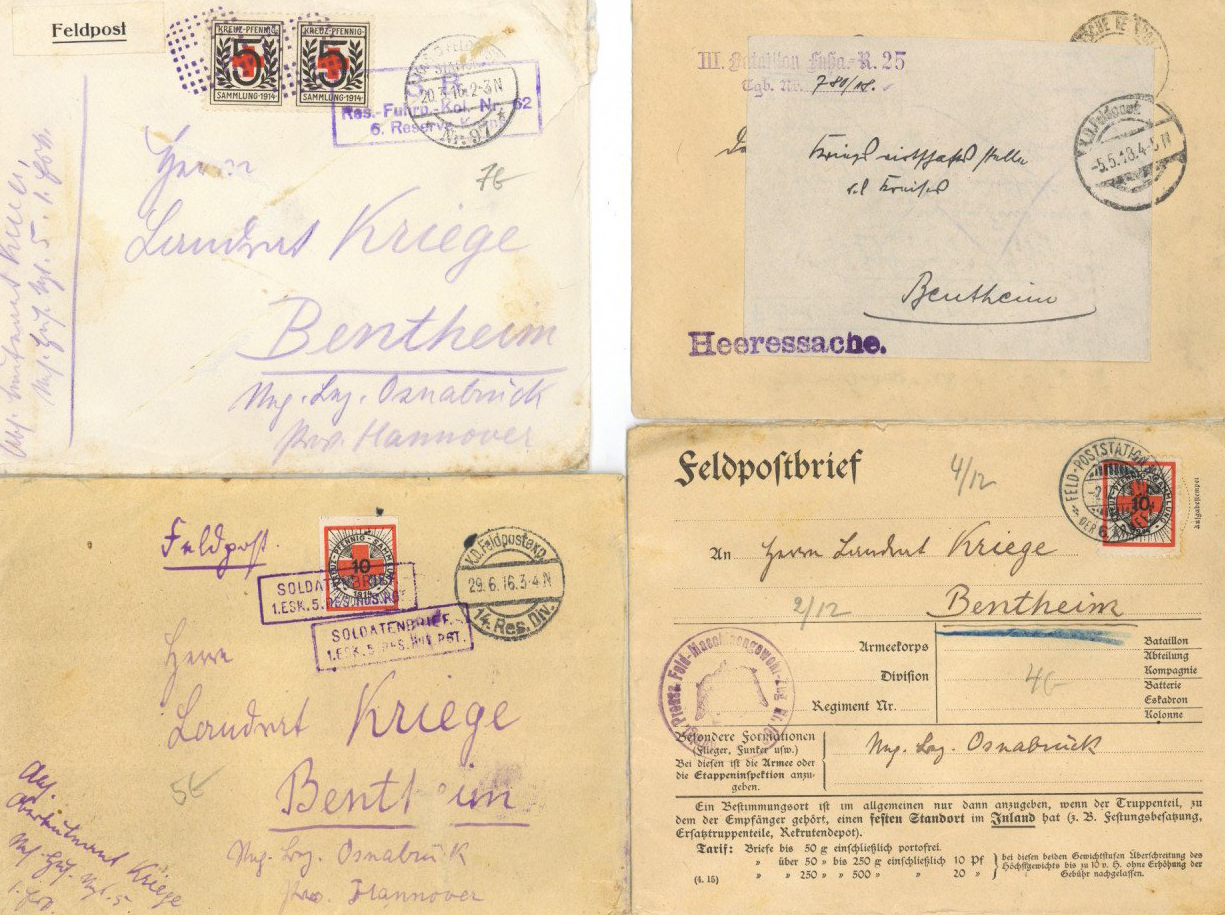 Feldpost
KREUZ-PFENNIG-
5
SAMMLUNG-1914-
KREUZ-PFENNIG-
5
SAMMLUNG-1914-
Res.-Fuhrp.-Kol. Nr. 62
6. Reserve
Herrn
Landrat Kriege
7
Bentheim
Osnabrück
Prov. Hannover
III. Bataillon Fußa.-R. 25
Tgb. Nr. 780/18.
K.D. Feldpost
-5.5.18.4-5N
Kriegswirtschaftsstelle
Bentheim
Heeressache.
Feldpost.
KREUZ-PFENNIG-SAMMLUNG
10
1914
SOLDATENBRIEF
1.ESK.5.RES.HUS.RGT.
SOLDATENBRIEF
1.ESK.5.RES.HUS.RGT.
K.D. Feldpostexp.
29.6.16.3-4N
14. Res. Div.
Herrn
Landrat Kriege
Bentheim
Osnabrück
Prov. Hannover
Abs.
Oberleutnant Kriege
Feldpostbrief
4/12
FELD-POSTSTATION
DER 6 ARMEE
10
Aufgabestempel
An Herrn Landrat Kriege
2/12
Bentheim
Armeekorps
Division
Regiment Nr.
Bataillon
Abteilung
Kompagnie
Batterie
Eskadron
Kolonne
Feld-Maschinengewehr-Zug Nr.
Besondere Formationen
(Flieger, Funker usw.)
Bei diesen ist die Armee oder
die Etappeninspektion anzu-
geben.
Osnabrück
Ein Bestimmungsort ist im allgemeinen nur dann anzugeben, wenn der Truppenteil, zu
dem der Empfänger gehört, einen festen Standort im Inland hat (z. B. Festungsbesatzung,
Ersatztruppenteile, Rekrutendepot).
Tarif: Briefe bis 50 g einschließlich portofrei.
" über 50 " bis 250 g einschließlich 10 Pf
" " 250 " " 500 " " 20 "
bei diesen beiden Gewichtstufen Überschreitung des
Höchstgewichts bis zu 10 v. H. ohne Erhöhung der
Gebühr nachgelassen.
(4. 15)